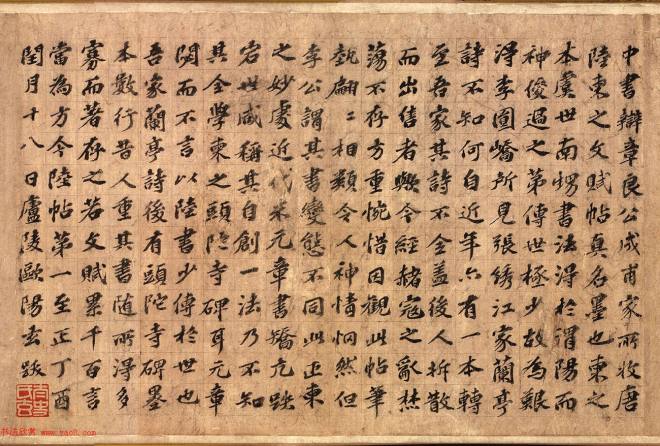 中書辯章良公成甫家所收唐
陸柬之文賦帖真名墨也柬之
本虞世南甥書法得於渭陽而
神俊過之第傳世極少故為艱
得李圓嶠所見張綉江家蘭亭
詩不知何自近年六有一本轉
至吾家其詩不全蓋後人拆散
而出售者歟今經赭寇之亂焚
蕩不存方重惋惜因觀此帖筆
執翩〻相類令人神情惘然但
李公謂其書變態不同此正柬
之妙處近代米元章書矯亢跌
宕世咸稱其自創一法乃不知
其全學柬之頭陁寺碑耳元章
閟而不言以陸書少傳於世也
吾家蘭亭詩後有頭陀寺碑墨
本數行昔人重其書随所得多
寡而著存之若文賦累千百言
當為方今陸帖第一至正丁酉
閏月十八日廬陵歐陽玄跋
书法欣赏 www.yac8.com